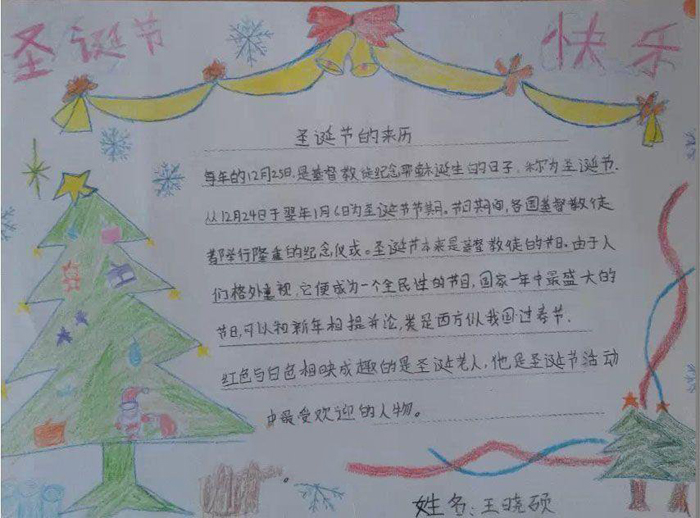 圣诞节 快乐
圣诞节的来历
每年的12月25日,是基督教徒纪念耶稣诞生的日子,称为圣诞节.
从12月24日于翌年1月6日为圣诞节节期。节日期间,各国基督教徒
都举行隆重的纪念仪式。圣诞节本来是基督教徒的节日,由于人
们格外重视,它便成为一个全民性的节日,国家一年中最盛大的
节日,可以和新年相提并论,类是西方似我国过春节.
红色与白色相映成趣的是圣诞老人,他是圣诞节活动
中最受欢迎的人物。
姓名:王晓硕